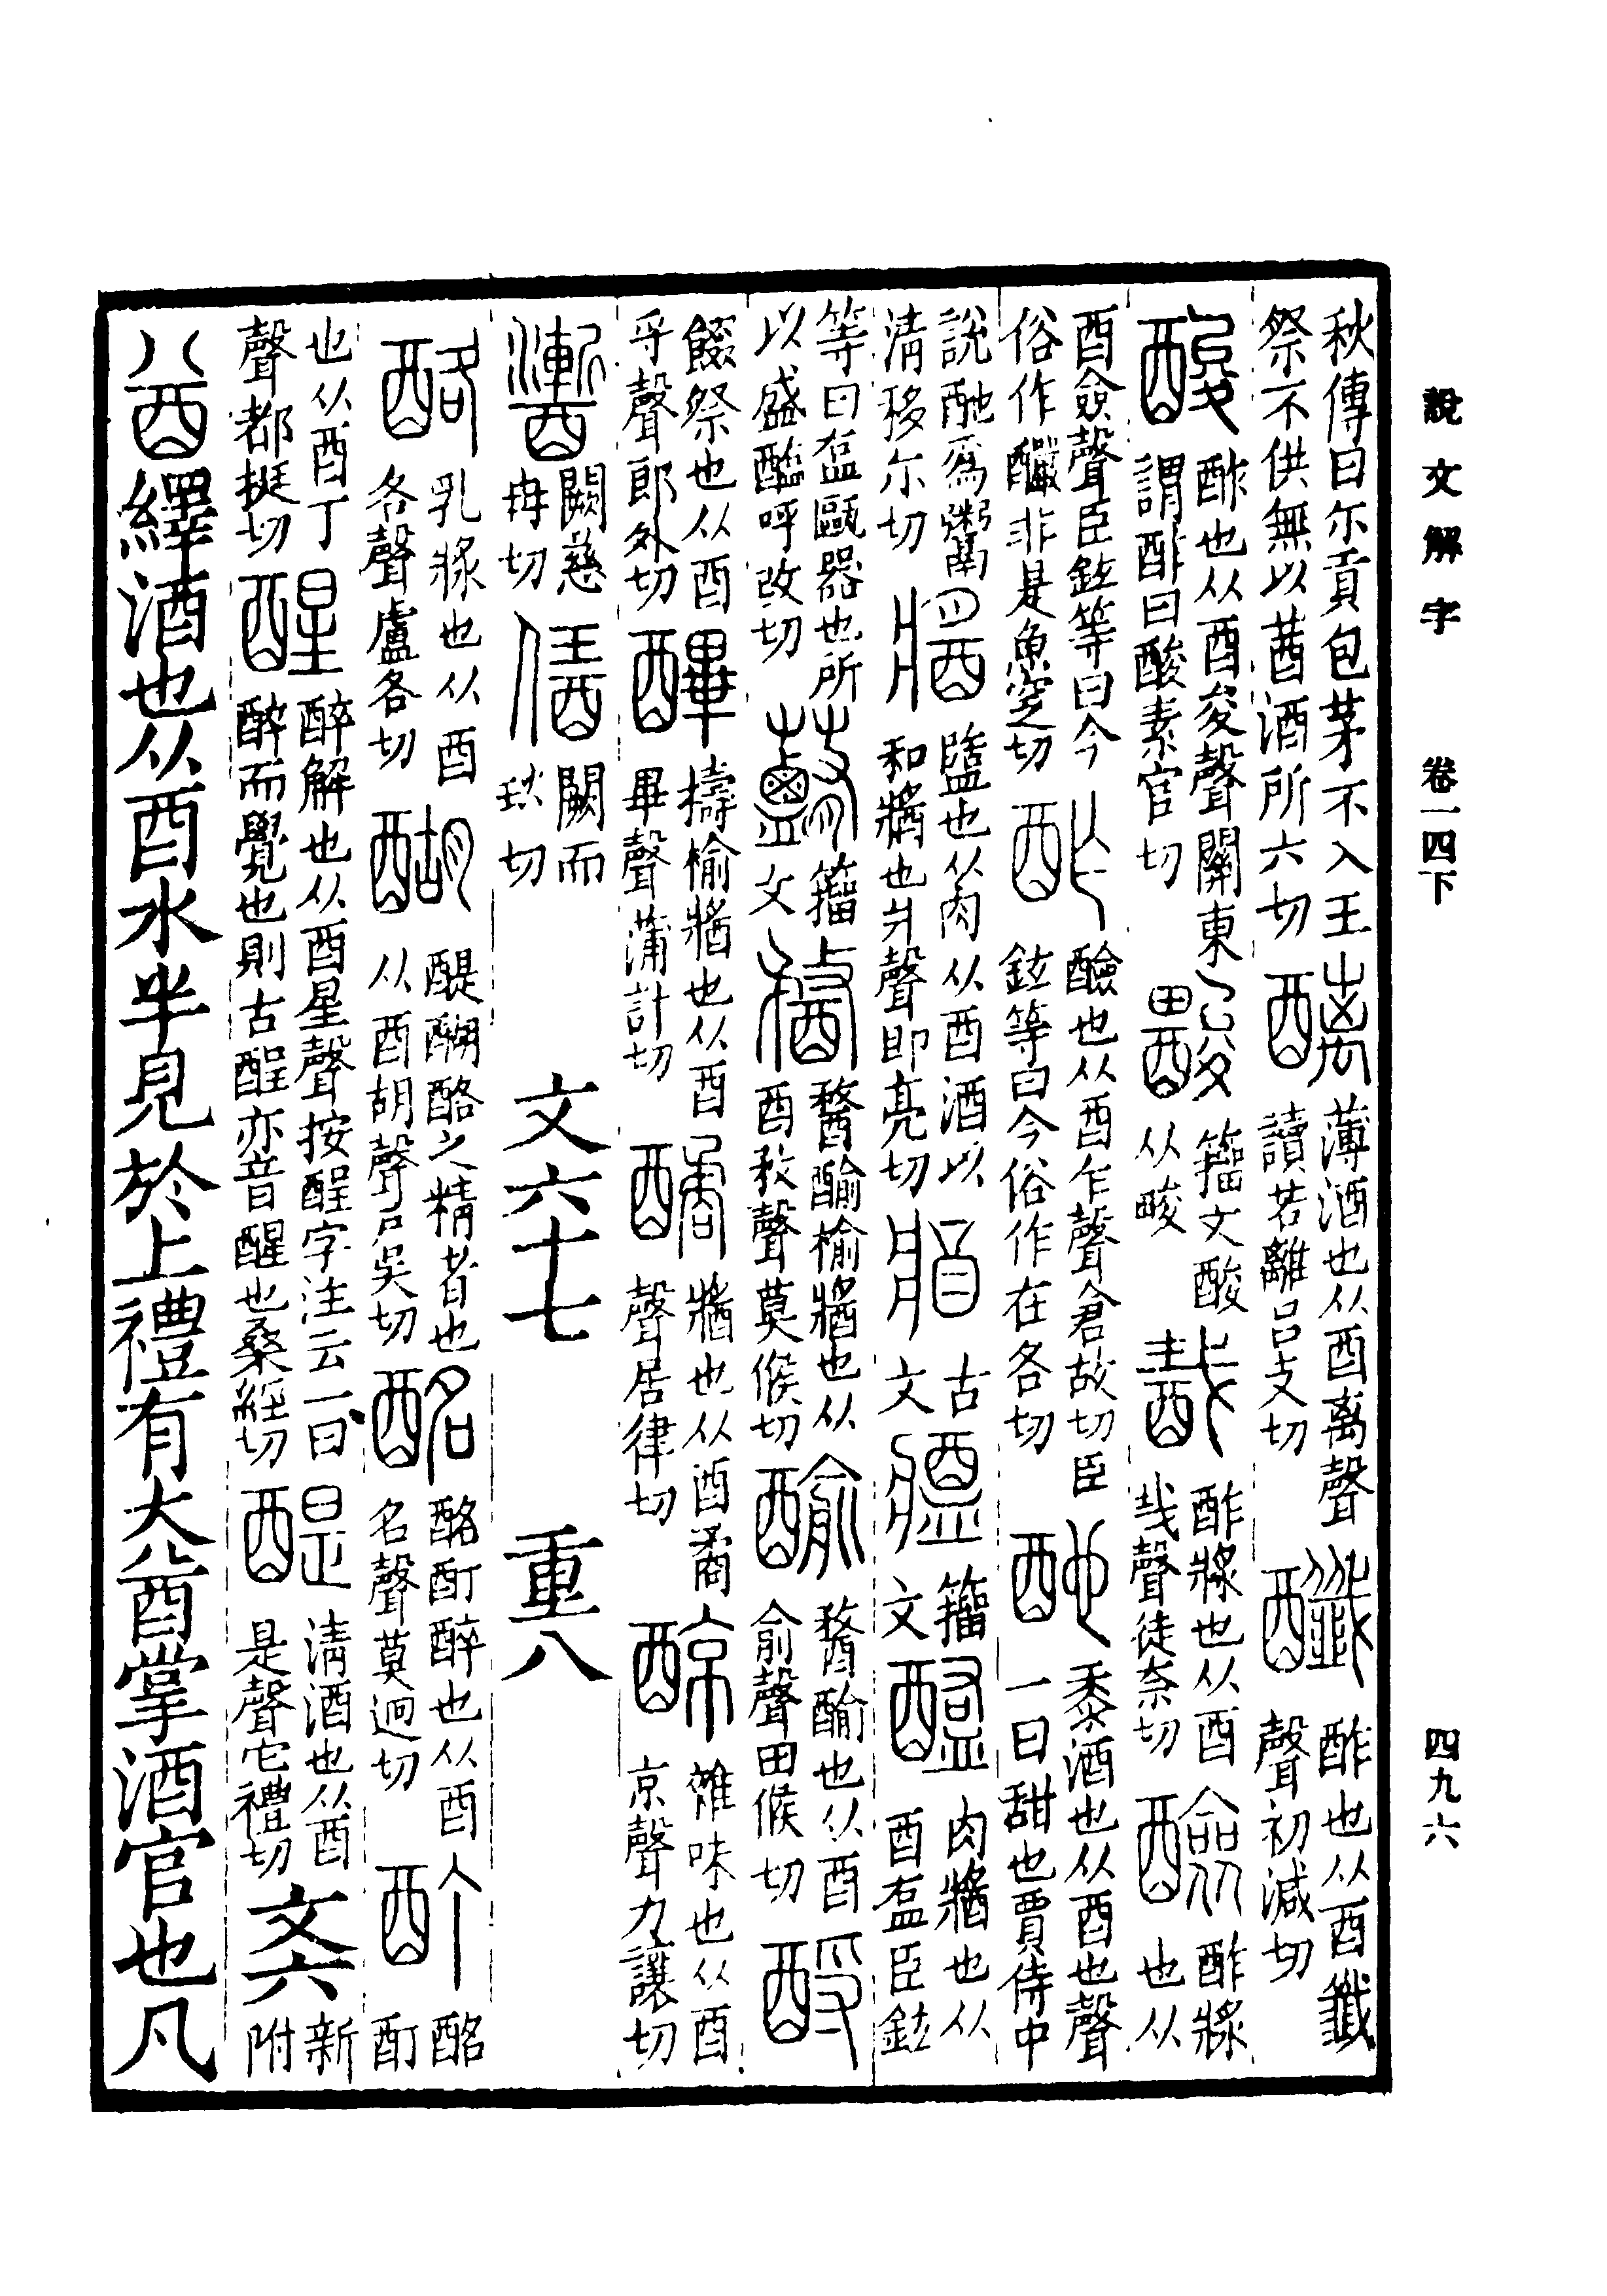 說文解字 卷一四下 四九六
秋傳曰尒貢包茅不入王祭不供無以莤酒所六切 醨 薄酒也从酉离聲讀若離吕支切 𨣻 酢也从酉韱聲初減切
酸 酢也从酉夋聲關東謂酢曰酸素官切 𨣐 籒文酸从畯 酨 酢將也从酉𢦏聲徒奈切 醶 酢漿也从
酉僉聲臣鉉等曰今俗作釅非是魚窆切 酢 醶也从酉乍聲倉故切臣鉉等曰今俗作在各切 酏 黍酒也从酉也聲一曰甜也賈侍中
說酏爲鬻清移尒切 醬 盬也从肉从酉酒以和牆也爿聲即亮切 古文 籒文 醢 肉牆也从酉𥁓臣鉉
等曰𥁓甌器也所以盛醢呼改切 籒文 𨡭 𨡭䤅榆牆也从酉敄聲莫候切 䤅 𨡭䤅也从酉俞聲田候切 酹
餟祭也从酉寽聲郎外切 䤗 擣榆牆也从酉畢聲蒲計切 䤎 牆也从酉矞聲居律切 䣼 雜味也从酉京聲力讓切
闕慈冉切 闕而琰切 文六十七 重八
酪 乳漿也从酉各聲盧各切 醐 醍醐酪之精者也从酉胡聲戶吳切 酩 酩酊醉也从酉名聲莫迥切 酊 酩酊
也从酉丁聲都挺切 醒 醉解也从酉星聲按酲字注云一曰醉而覺也則古酲亦音醒也桑經切 醍 清酒也从酉是聲它禮切 文六 新附
酋 繹酒也从酉水半見於上禮有大酋掌酒官也凡